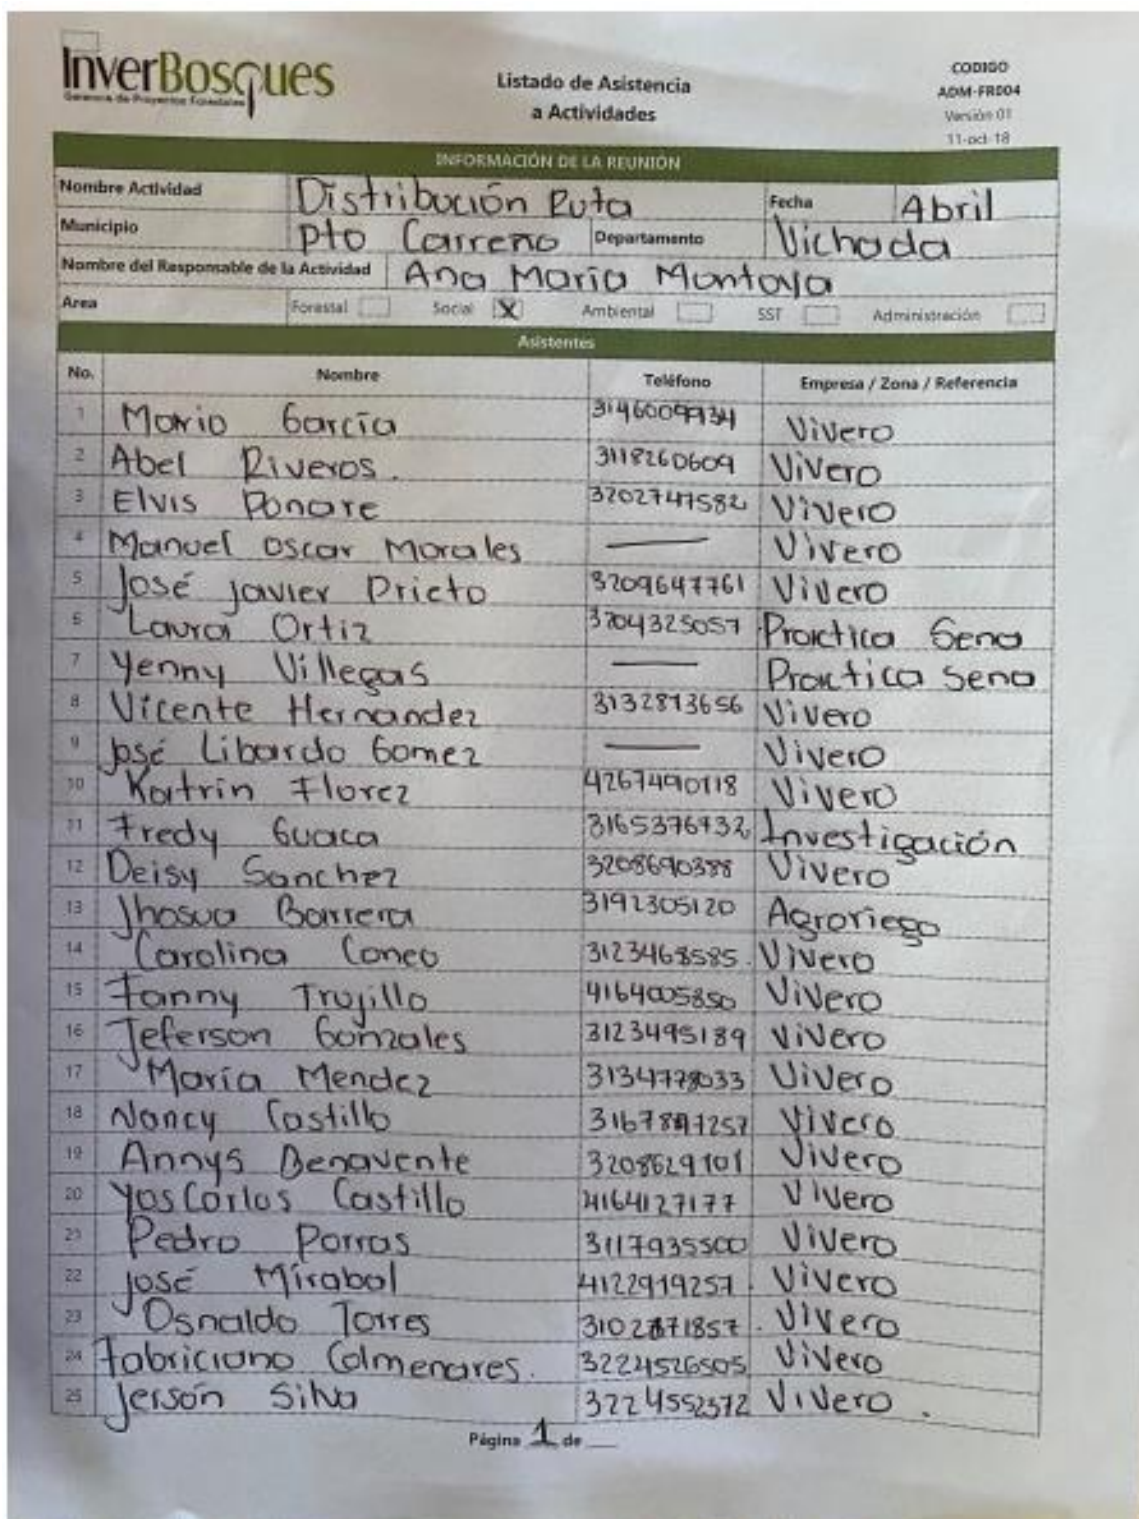 InverBosques
Gerencia de Proyectos Forestales
Listado de Asistencia
a Actividades
CODIGO
ADM-FR004
Versión 01
11-oct-18
INFORMACIÓN DE LA REUNIÓN
Nombre Actividad Distribución Ruta Fecha Abril
Municipio Pto Carreño Departamento Vichada
Nombre del Responsable de la Actividad Ana María Montoya
Area Forestal Social X Ambiental SST Administración
Asistentes
No. Nombre Teléfono Empresa / Zona / Referencia
1 Mario García 3146009934 Vivero
2 Abel Riveros. 3118260609 Vivero
3 Elvis Ponare 3202747582 Vivero
4 Manuel Oscar Morales — Vivero
5 José Javier Prieto 3209647761 Vivero
6 Laura Ortiz 3204325057 Practica Sena
7 Yenny Villegas — Practica Sena
8 Vicente Hernandez 3132873656 Vivero
9 José Libardo Gomez — Vivero
10 Katrin Florez 4267490118 Vivero
11 Fredy Guaca 3165376932 Investigación
12 Deisy Sanchez 3208690388 Vivero
13 Jhosua Barrera 3192305120 Agroriego
14 Carolina Coneo 3123468585. Vivero
15 Fanny Trujillo 4164005850 Vivero
16 Jeferson Gonzales 3123495189 Vivero
17 María Mendez 3134778033 Vivero
18 Nancy Castillo Vivero
19 Annys Benavente 3208629101 Vivero
20 Yoscarlos Castillo 4164127177 Vivero
21 Pedro Porras 3117935500 Vivero
22 José Mirabal 4122919257. Vivero
23 Osnaldo Torres Vivero
24 Fabriciano Colmenares. 3224526505 Vivero
25 Jerson Silva 3224552572 Vivero.
Página 1 de